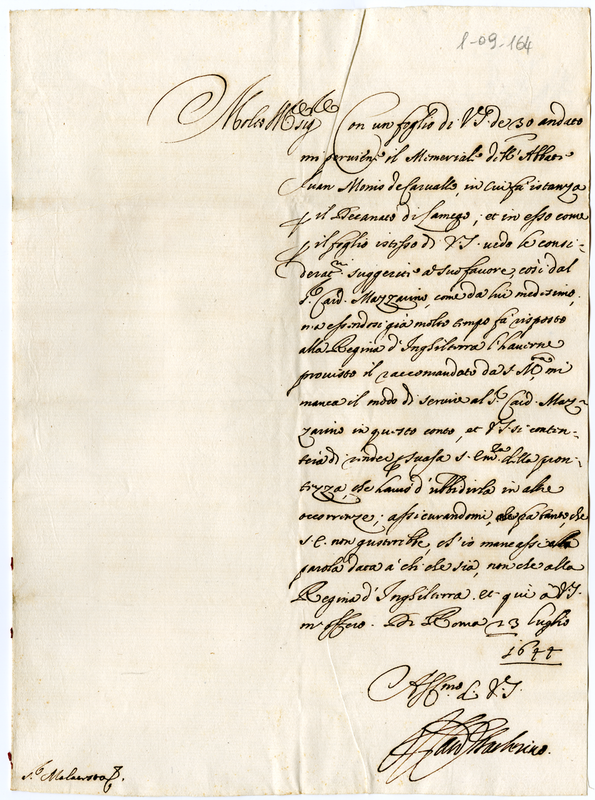 1-09-164
Molto Ill.re Sig.re Con un foglio di V.S. de 30 andato
mi perviene il Memoriale dell' Abbate
Juan Monis de Carvallo, in cui fa istanza
il Decanato di Lamego, et in esso come
il foglio istesso di V.S. vedo le consi-
derat.ni suggerite a suo favore, così dal
S.r Card. Mazzarino, come da lui medesimo,
ma essendosi già molto tempo fa risposto
alla Regina d'Inghilterra l'haverne
provisto il raccomandato da S. M.tà mi
manca il modo di servire al S.r Card. Maz-
zarino in questo conto, et V.S. si conten-
terà di render persuasa S. Em.za della pron-
tezza, che havrò d'ubbidirla in altre
occorrenze; assicurandomi, che fra tanto, che
S. E. non gusterebbe, ch'io mancassi alla
parola data a chi che sia, non che alla
Regina d'Inghilterra. et qui à V.S.
m'offero. Di Roma 23 luglio
1644
Aff.mo di V.S.
Card. Barberino.
S.r